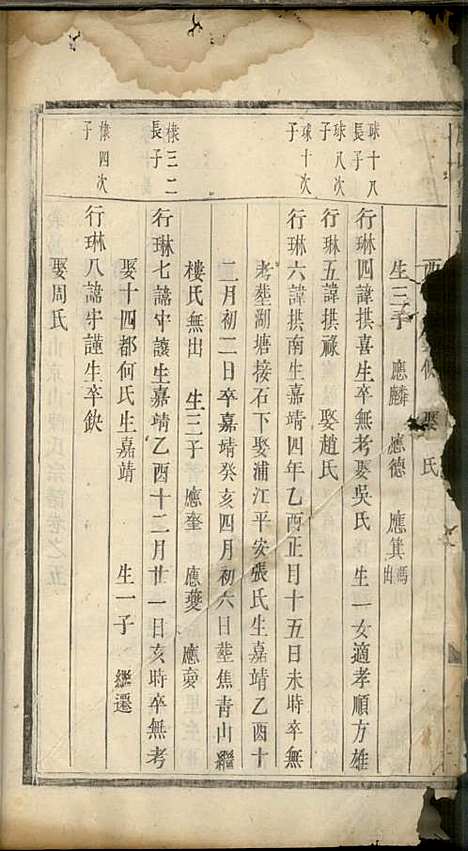 生三子 應麟 應德 應箕馮出
球十八長子
行琳四諱拱喜生卒無考娶吳氏 生一女適孝順方雄
球八次子
行琳五諱拱祿 娶趙氏
球十次子
行琳六諱拱南生嘉靖四年乙酉正月十五日未時卒無
考塟湖塘接石下娶浦江平安張氏生嘉靖乙酉十
二月初二日卒嘉靖癸亥四月初六日塟焦青山繼
樓氏無出 生三子 應奎 應夔 應
棣三二長子
行琳七諱守讓生嘉靖乙酉十二月廿一日亥時卒無考
娶十四都何氏生嘉靖 生一子 繼遷
棣四次子
行琳八諱守謹生卒缺
娶周氏